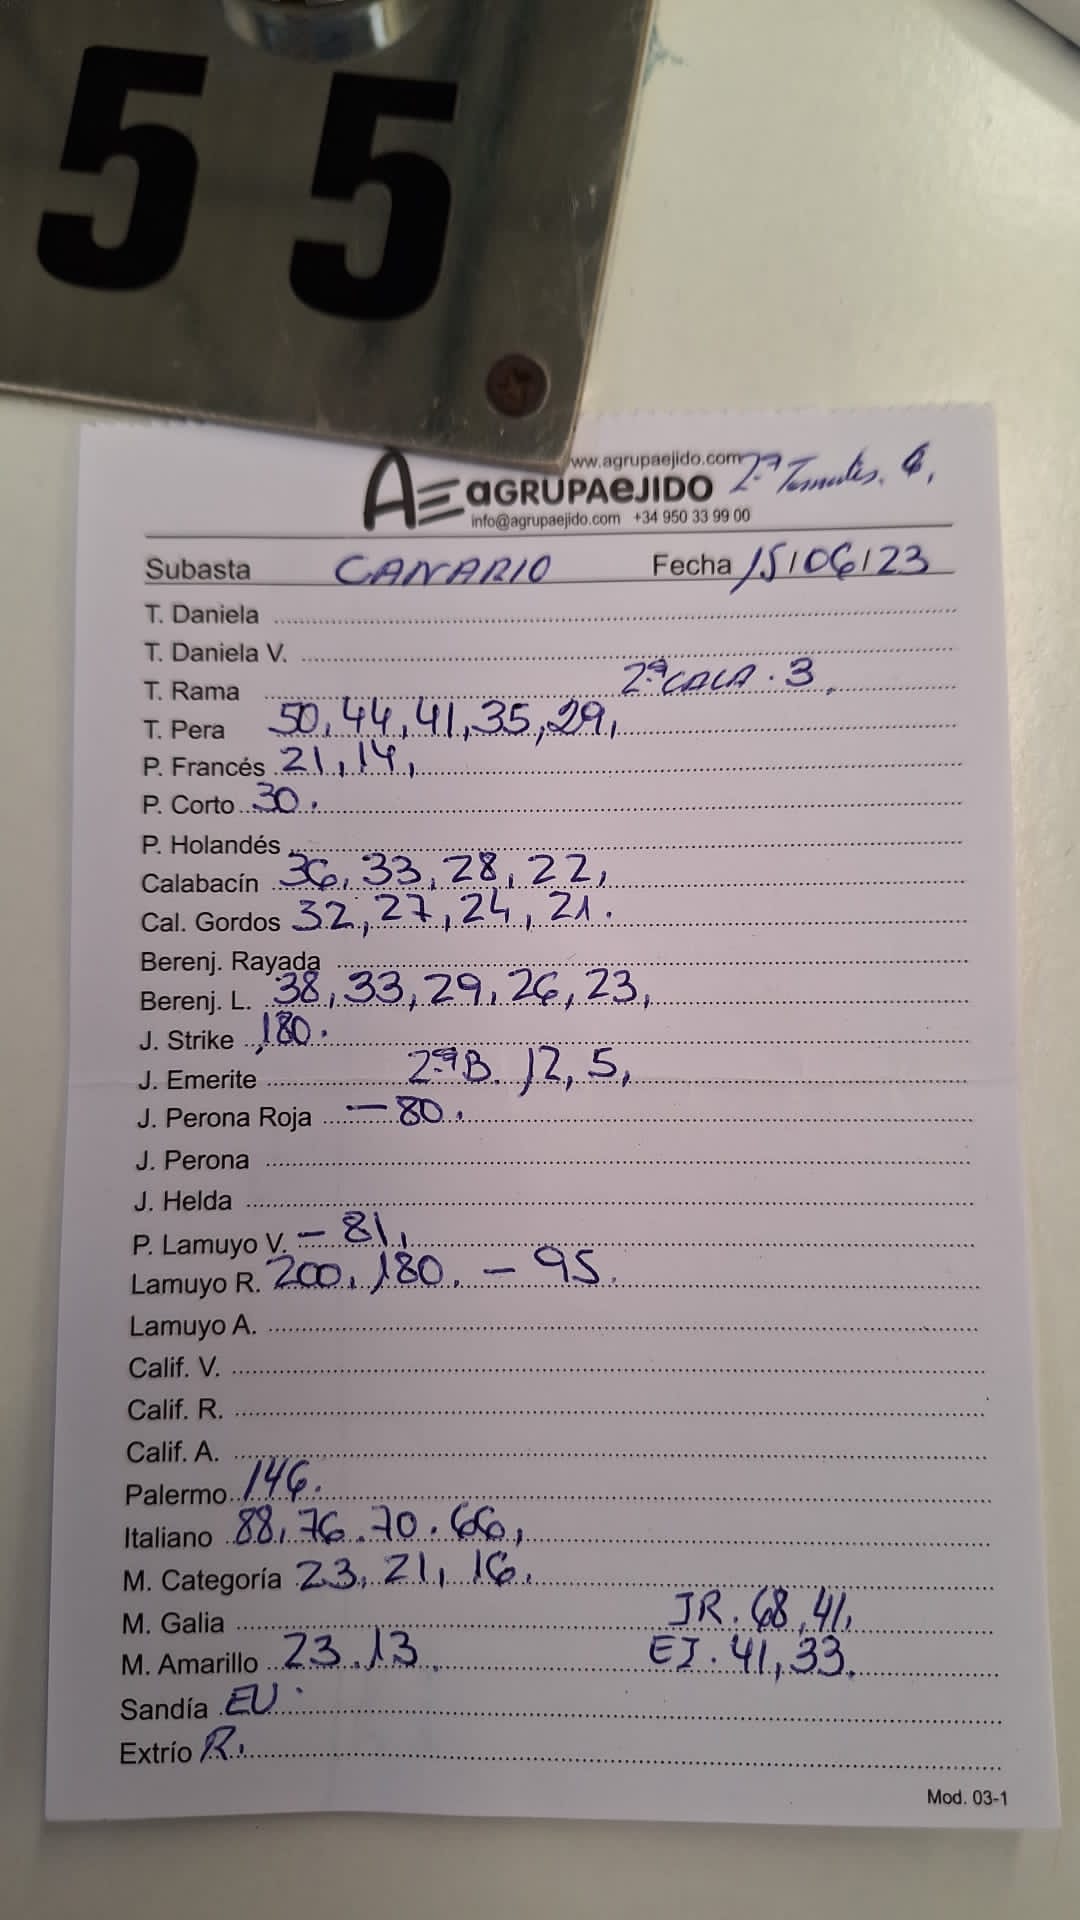 55
www.agrupaejido.com
2ª Tomates. 6,
AE aGRUPAeJIDO
info@agrupaejido.com +34 950 33 99 00
Subasta CANARIO Fecha 15/06/23
T. Daniela
T. Daniela V.
T. Rama 2ª CALA. 3,
T. Pera 50, 44, 41, 35, 29,
P. Francés 21, 14,
P. Corto 30.
P. Holandés
Calabacín 36, 33, 28, 22,
Cal. Gordos 32, 27, 24, 21.
Berenj. Rayada
Berenj. L. 38, 33, 29, 26, 23,
J. Strike 180.
J. Emerite 2ªB. 12, 5,
J. Perona Roja – 80.
J. Perona
J. Helda
P. Lamuyo V. – 81,
Lamuyo R. 200, 180. – 95.
Lamuyo A.
Calif. V.
Calif. R.
Calif. A.
Palermo 146.
Italiano 88, 76. 70. 66,
M. Categoría 23, 21, 16.
M. Galia JR. 68, 41,
M. Amarillo 23. 13. EJ. 41, 33.
Sandía EU.
Extrío R.
Mod. 03-1